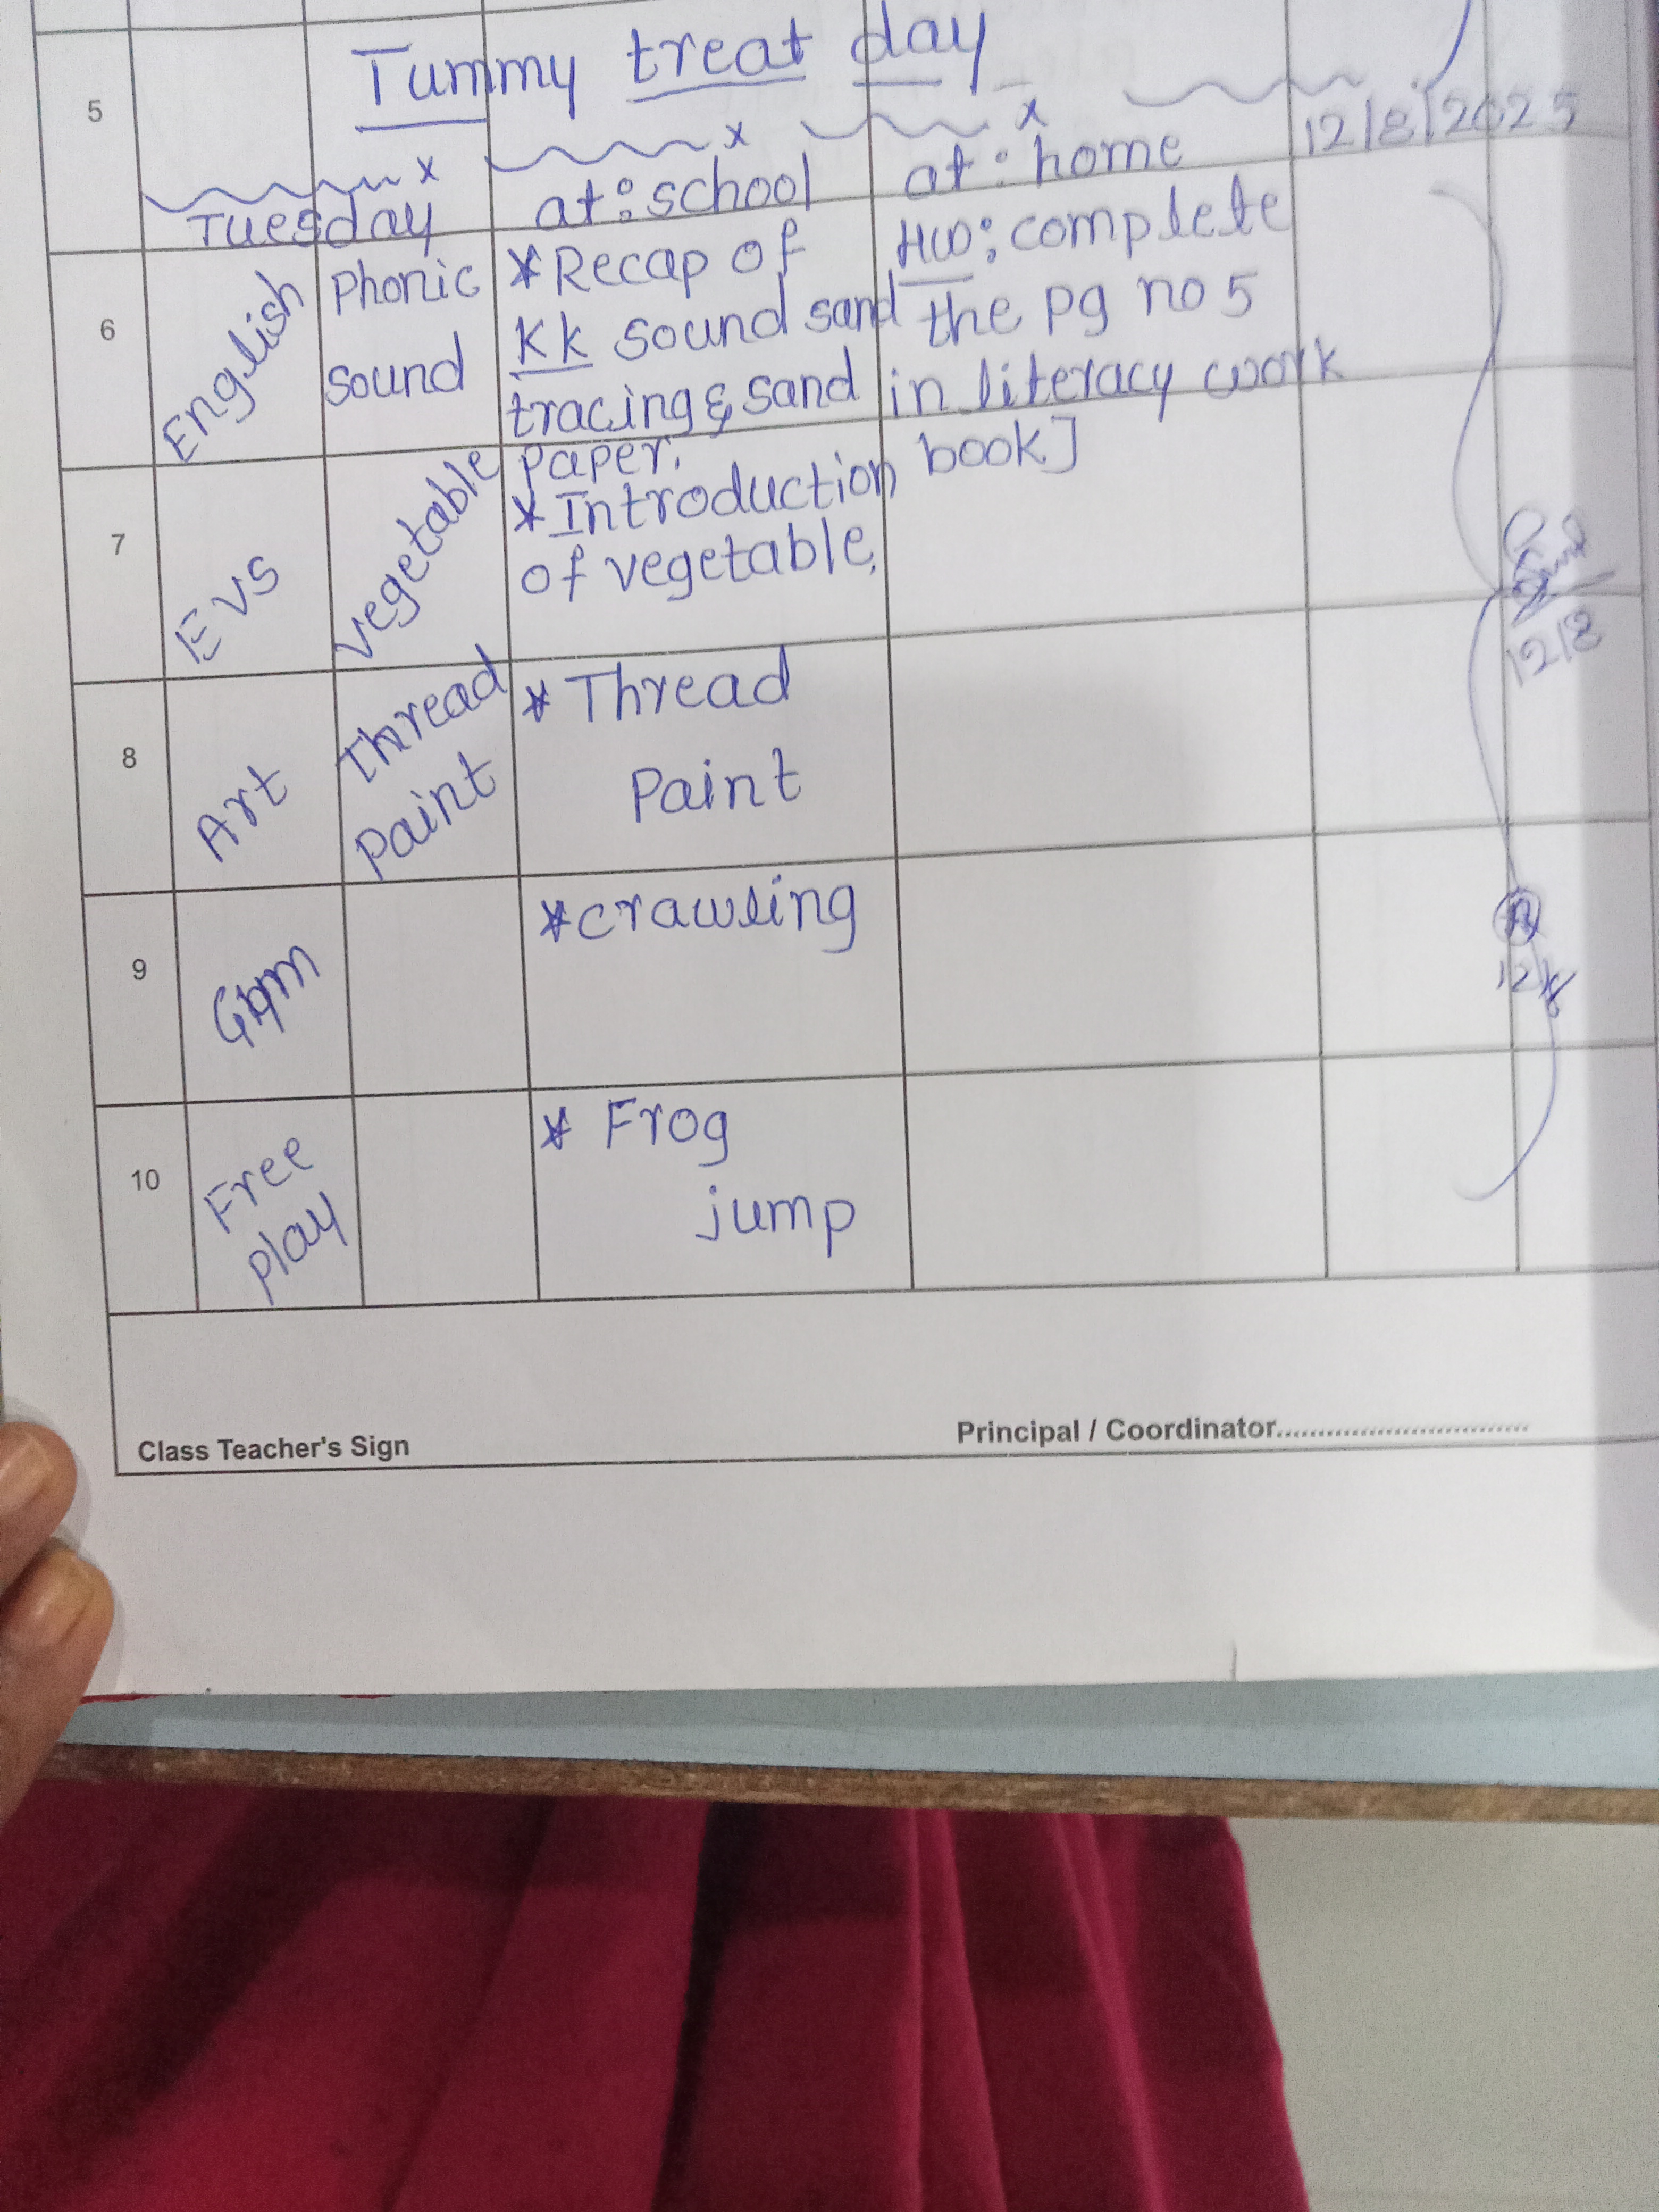 5
Tummy treat day
12/8/2025
Tuesday at: school at: home
6 English Phonic sound
*Recap of
Kk sound sand
tracing & sand
paper.
HW: complete
the pg no 5
in literacy work
book]
7 EVS vegetable
*Introduction
of vegetable.
8 Art Thread Paint
* Thread
Paint
9 Gym
*crawling
10 Free play
* Frog
jump
12/8
12/8
Class Teacher's Sign
Principal / Coordinator..............................